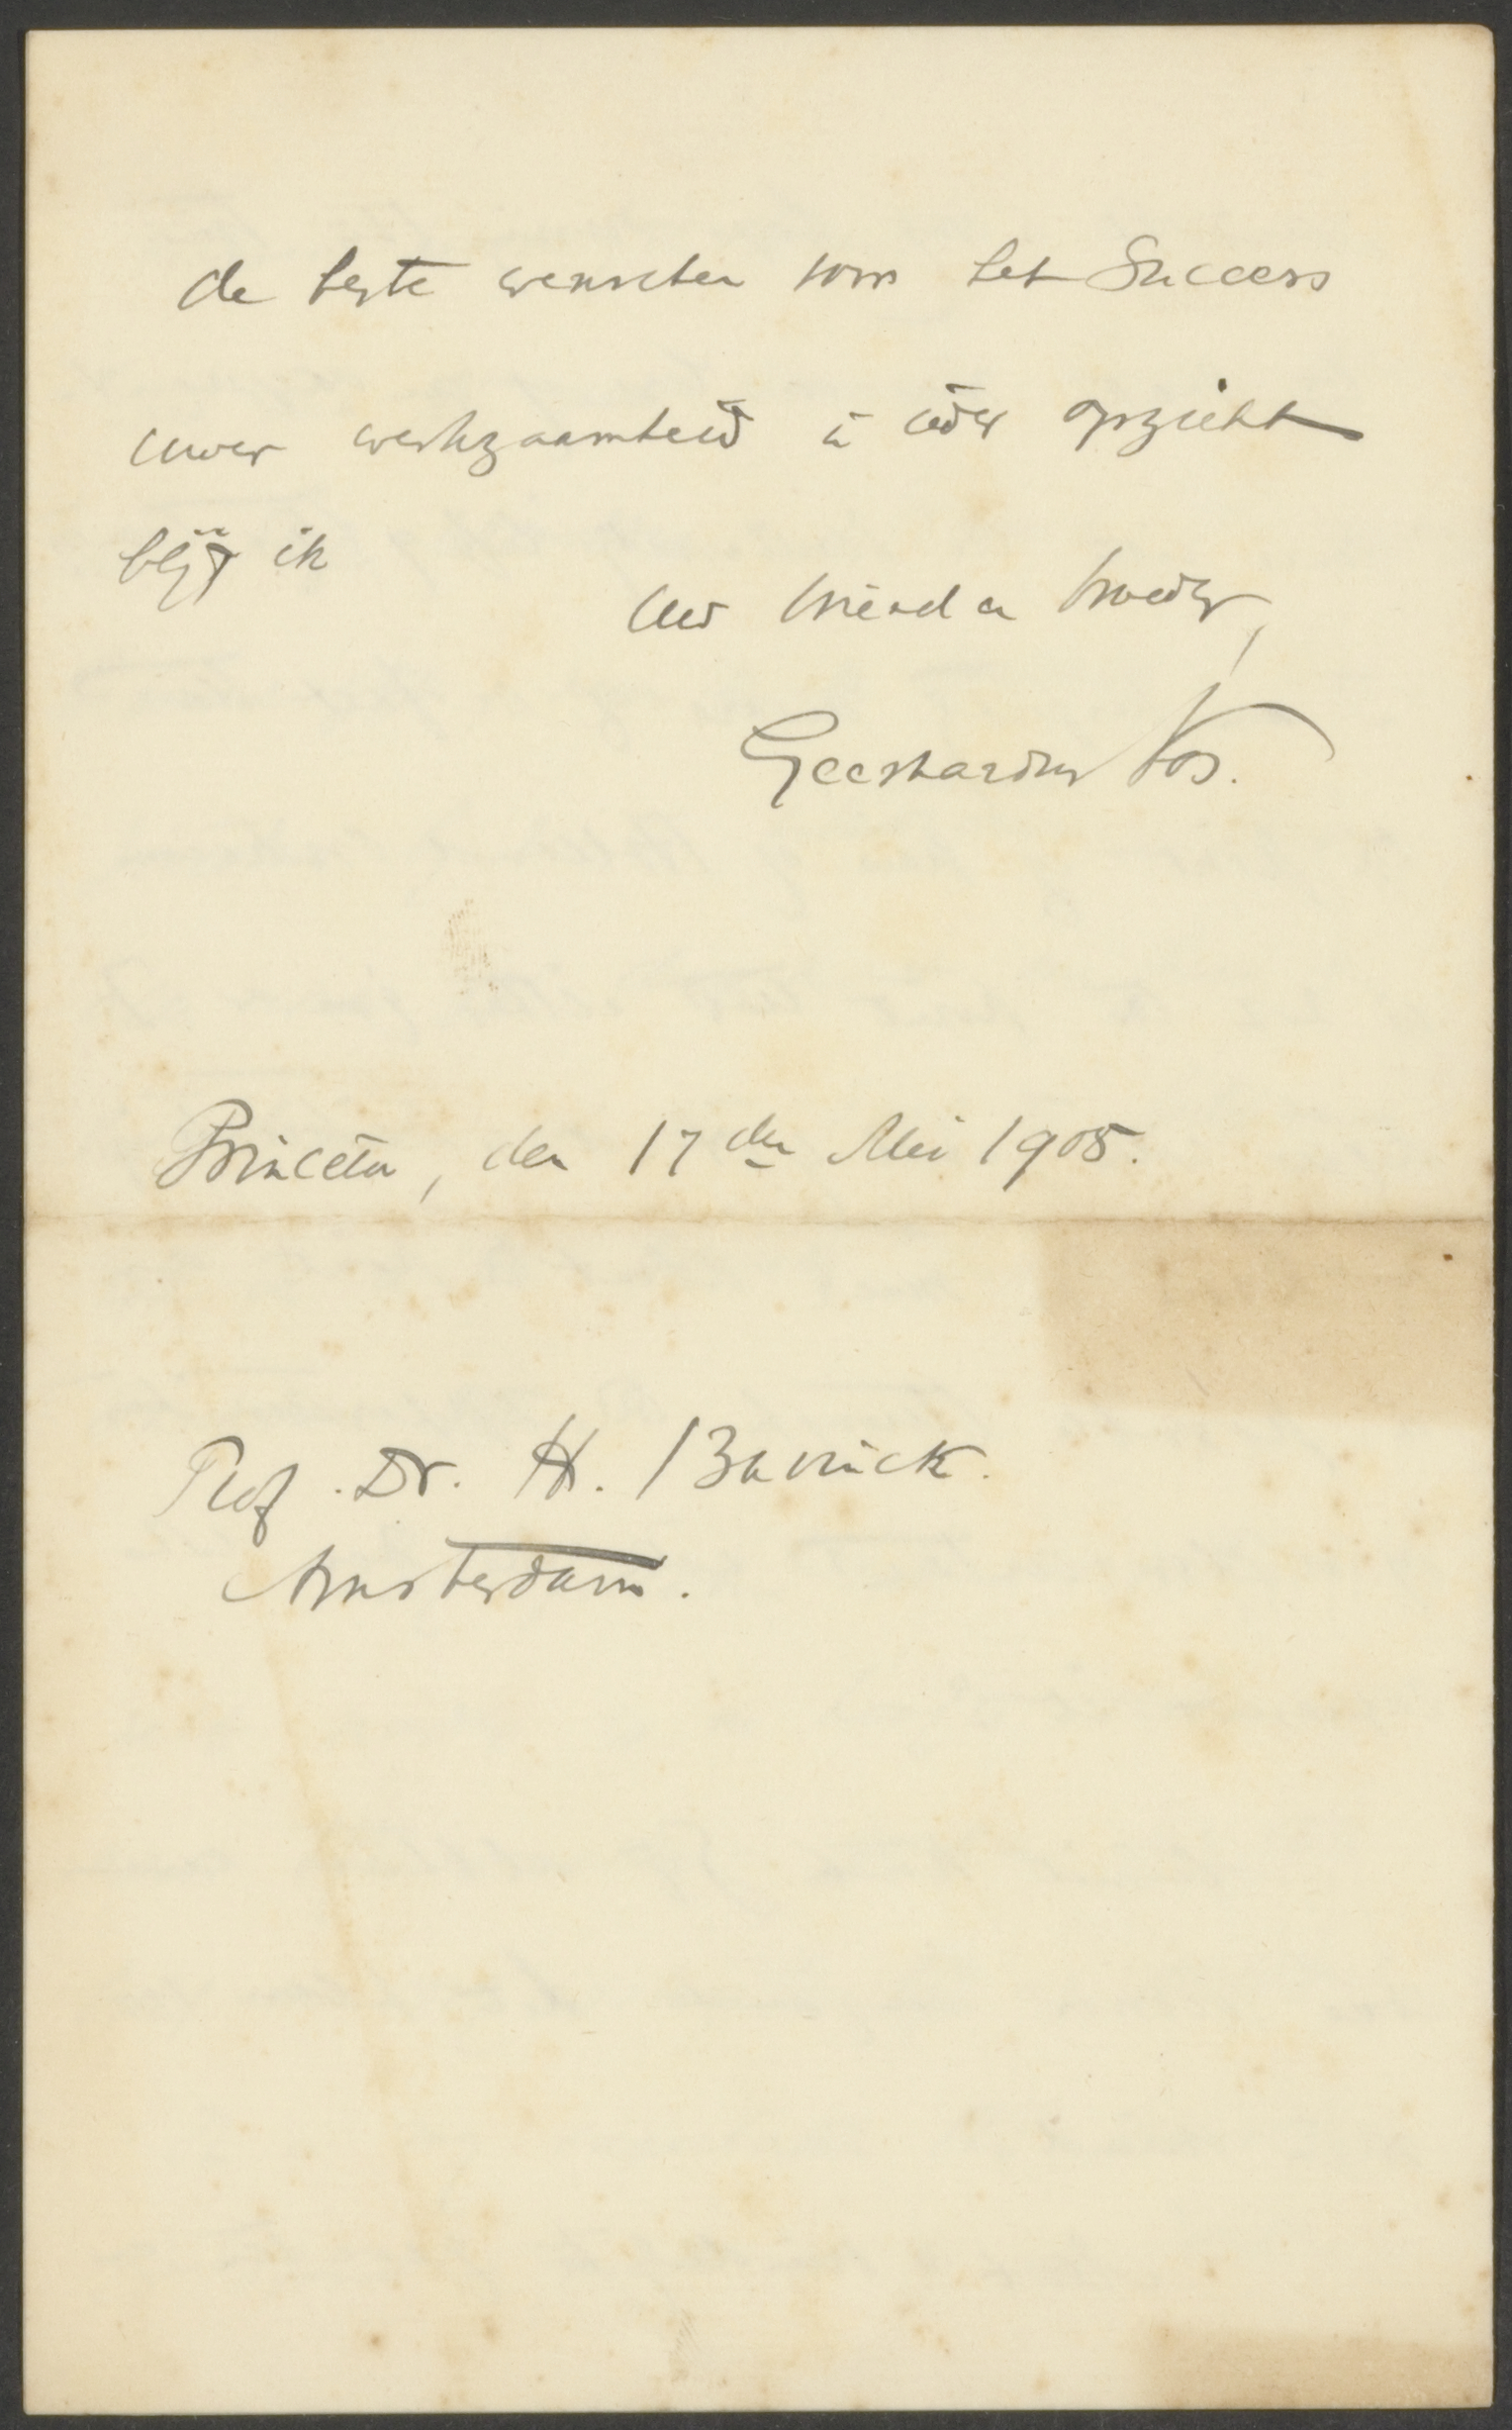 de beste wenschen voor het Success
uwer werkzaamheid in ieder opzicht
blijf ik
Uw vriend en broeder,
Geerhardus Vos.
Princeton, den 17den Mei 1905.
Prof. Dr. H. Bavinck.
Amsterdam.